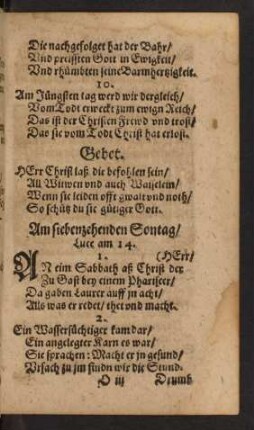 Die nachgefolget hat der Bahr/
Vnd preißten Gott in Ewigkeit/
Vnd rhümbten seine Barmhertzigkeit.
10.
Am Jüngsten tag werd wir dergleich/
Vom Todt erweckt zum ewign Reich/
Das ist der Christen Frewd vnd trost/
Das sie vom Todt Christ hat erlost.
Gebet.
HErr Christ laß dir befohlen sein/
All Witwen vnd auch Waiselein/
Wenn sie leiden offt gwalt vnd noth/
So schütz du sie gütiger Gott.
Am siebenzehenden Sontag/
Luce am 14.
1. (HErr/
AN eim Sabbath aß Christ der
Zu Gast bey einem Phariseer/
Da gaben Laurer auff jn acht/
Als was er redet/ thet vnd macht.
2.
Ein Wassersüchtiger kam dar/
Ein angelegter Karn es war/
Sie sprachen: Macht er jn gesund/
Vrsach zu jm findn wir die Stund.
O iij Drumb